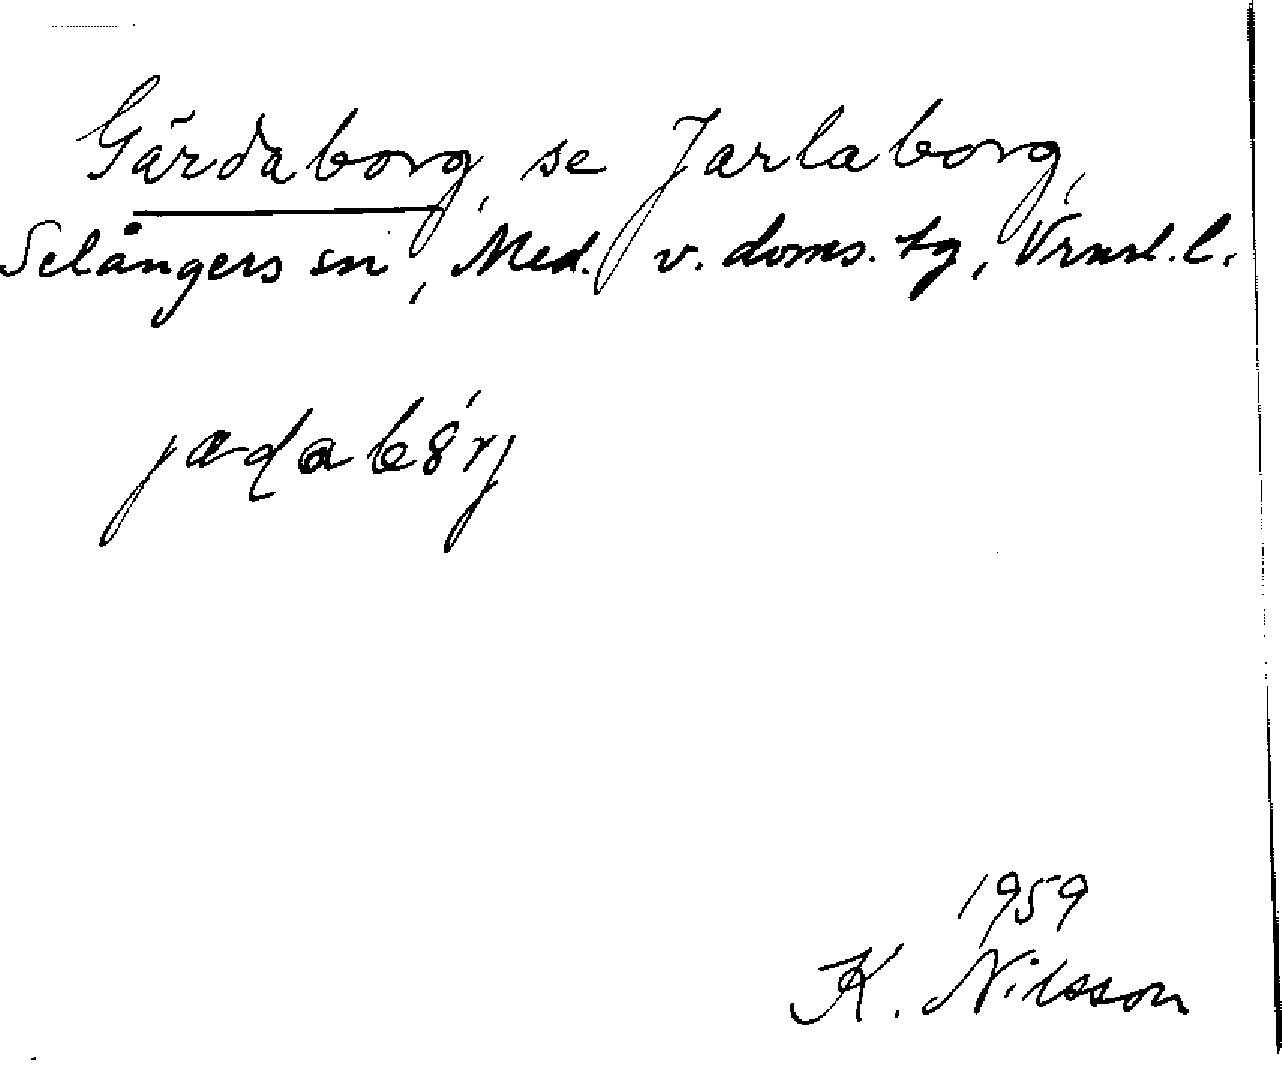 Gärdaborg, se Jarlaborg,
Selångers sn, Med. v. doms. tg, Vrnrl. l.
jædabȣ́rj
1959
K. Nilsson